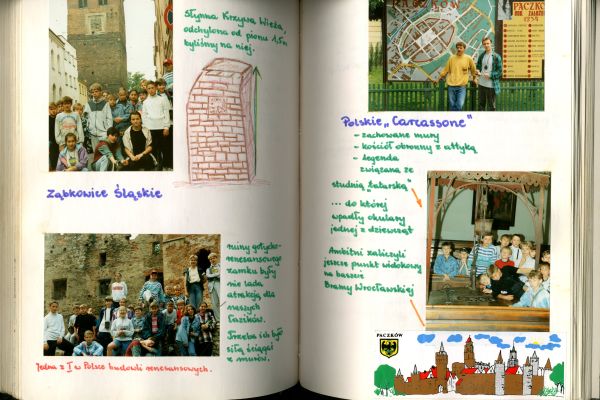 Słynna Krzywa Wieża,
odchylona od pionu 1,5m
byliśmy na niej.
Ząbkowice Śląskie
ruiny gotycko-
renesansowego
zamku były
nie lada
atrakcją dla
naszych
Łazików.
Trzeba ich było
siłą ściągać
z murów.
Jedna z I w Polsce budowli renesansowych.
PACZKÓW
PACZKÓ
ROK ZAŁOŻ
1254
Polskie „Carcassone"
- zachowane mury
- kościół obronny z attyką
- legenda
związana ze
studnią „tatarską"
... do której
wpadły okulary
jednej z dziewcząt
Ambitni zaliczyli
jeszcze punkt widokowy
na baszcie
Bramy Wrocławskiej
PACZKÓW